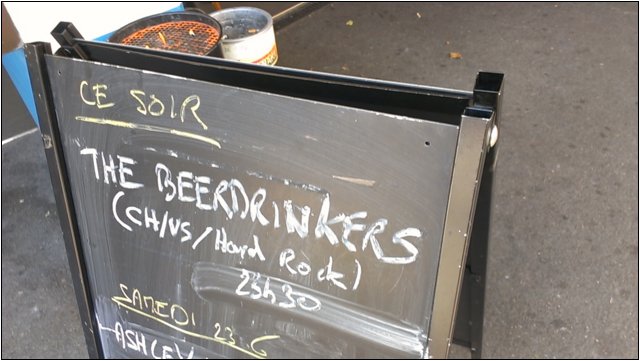 CE SOIR
THE BEERDRINKERS
(CH/VS/Hard Rock)
23h30
SAMEDI 23.6
ASHLEY